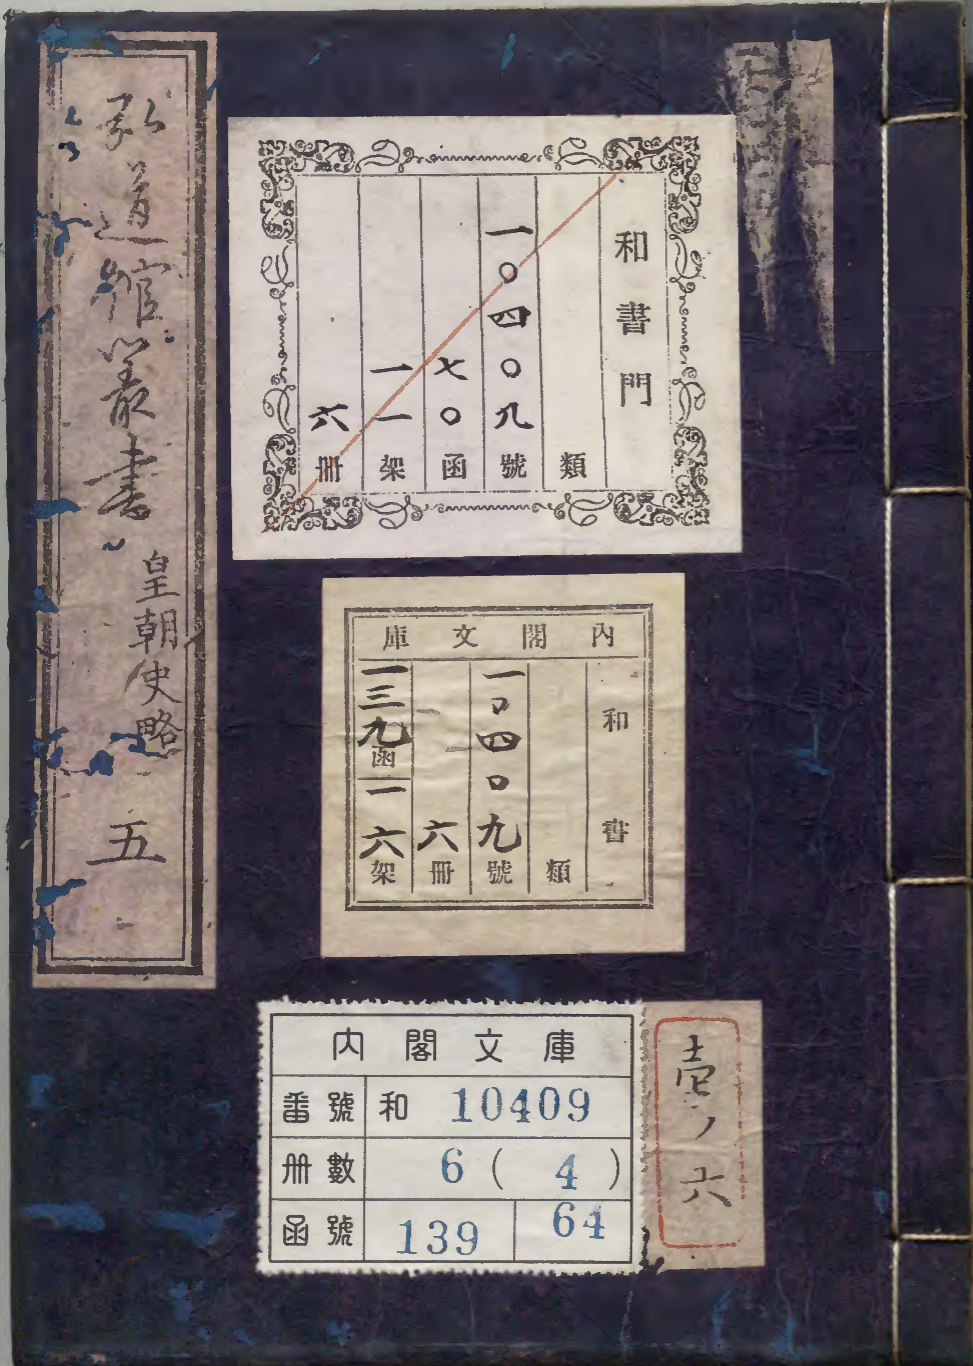 弘道館叢書
皇朝史略
五
和書門
類
一〇四〇九號
七〇函
一一架
六冊
內閣文庫
和書
類
一〇四〇九號
六冊
一三九函
一六架
內閣文庫
番號 和 10409
册數 6 ( 4 )
函號 139 64
壱ノ六